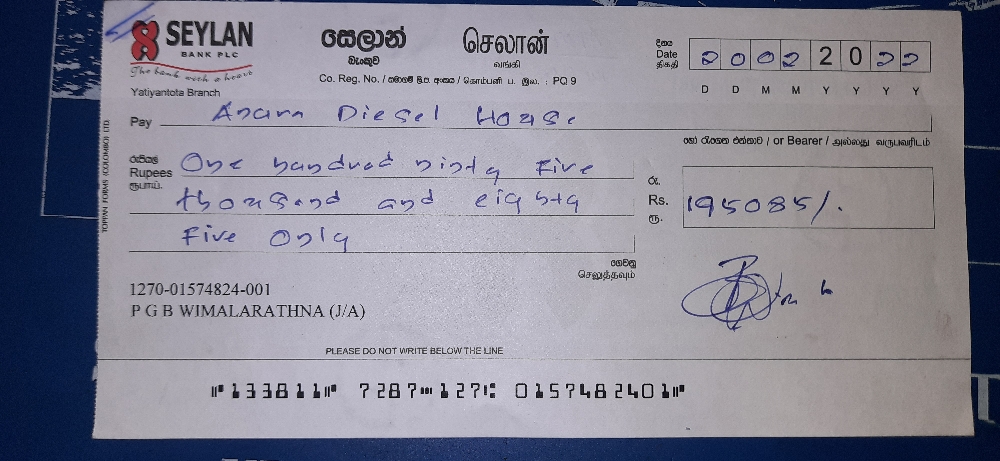 SEYLAN
BANK PLC
The bank with a heart
Yatiyantota Branch
සෙලාන්
බැංකුව
செலான்
வங்கி
Co. Reg. No. / සමාගම් ලි.ප. අංකය / கொம்பனி ப. இல. : PQ 9
දිනය
Date
திகதி
20 02 2022
D D M M Y Y Y Y
Pay Asara Diesel House
හෝ රැගෙන එන්නාට / or Bearer / அல்லது வருபவரிடம்
රුපියල්
Rupees
ரூபாய்.
One handred ninty Five
thousand and eighty
Five Only
රු.
Rs.
ரூ.
195085/.
ගෙවනු
செலுத்தவும்
1270-01574824-001
P G B WIMALARATHNA (J/A)
PLEASE DO NOT WRITE BELOW THE LINE
⑈133811⑈ 7287⑉127⑆ 0157482401⑈
TOPPAN FORMS (COLOMBO) LTD.